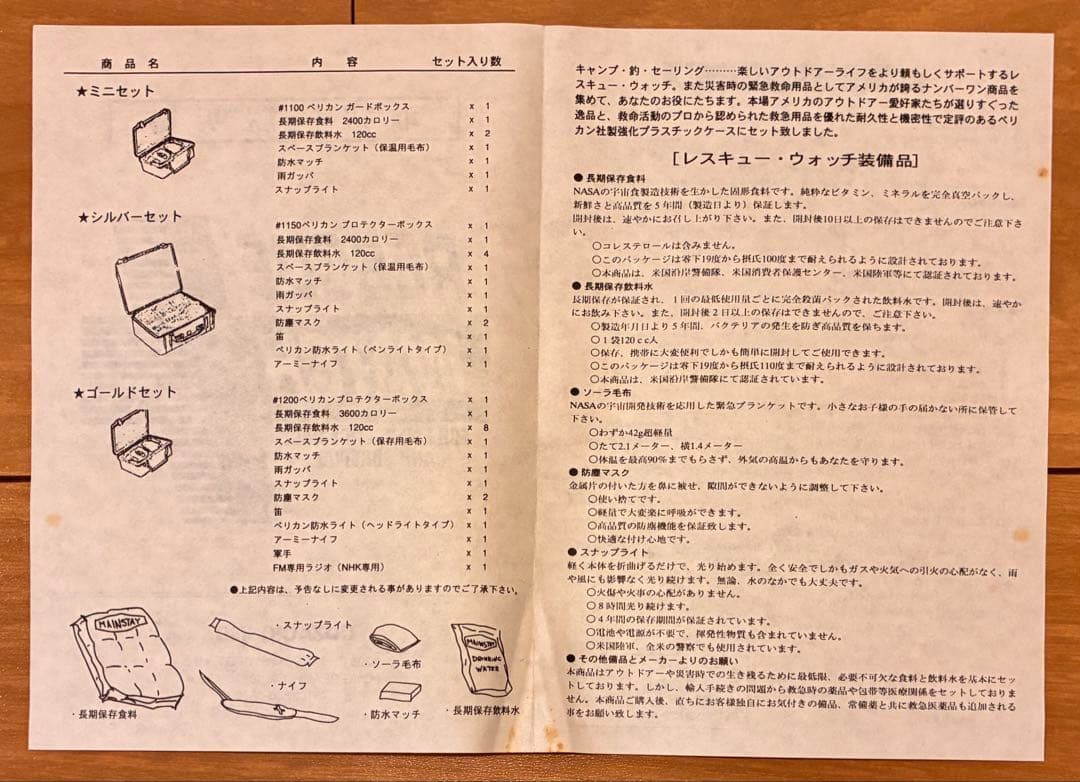 商品名 内容 セット入り数
★ミニセット
#1100 ペリカン ガードボックス x 1
長期保存食料 2400カロリー x 1
長期保存飲料水 120cc x 2
スペースブランケット（保温用毛布） x 1
防水マッチ x 1
雨ガッパ x 1
スナップライト x 1
★シルバーセット
#1150ペリカン プロテクターボックス x 1
長期保存食料 2400カロリー x 1
長期保存飲料水 120cc x 4
スペースブランケット（保温用毛布） x 1
防水マッチ x 1
雨ガッパ x 1
スナップライト x 1
防塵マスク x 2
笛 x 1
ペリカン防水ライト（ペンライトタイプ） x 1
アーミーナイフ x 1
★ゴールドセット
#1200ペリカンプロテクターボックス x 1
長期保存食料 3600カロリー x 1
長期保存飲料水 120cc x 8
スペースブランケット（保存用毛布） x 1
防水マッチ x 1
雨ガッパ x 1
スナップライト x 1
防塵マスク x 2
笛 x 1
ペリカン防水ライト（ヘッドライトタイプ） x 1
アーミーナイフ x 1
軍手 x 1
FM専用ラジオ（NHK専用） x 1
●上記内容は、予告なしに変更される事がありますのでご了承下さい。
MAINSTAY
・長期保存食料
・スナップライト
・ナイフ
・ソーラ毛布
・防水マッチ
MAINSTAY
DRINKING
WATER
・長期保存飲料水
キャンプ・釣・セーリング………楽しいアウトドアーライフをより頼もしくサポートするレ
スキュー・ウォッチ。また災害時の緊急救命用品としてアメリカが誇るナンバーワン商品を
集めて、あなたのお役にたちます。本場アメリカのアウトドアー愛好家たちが選りすぐった
逸品と、救命活動のプロから認められた救急用品を優れた耐久性と機密性で定評のあるペリ
カン社製強化プラスチックケースにセット致しました。
［レスキュー・ウォッチ装備品］
● 長期保存食料
NASAの宇宙食製造技術を生かした固形食料です。純粋なビタミン、ミネラルを完全真空パックし、
新鮮さと高品質を５年間（製造日より）保証します。
開封後は、速やかにお召し上がり下さい。また、開封後10日以上の保存はできませんのでご注意下さ
い。
○コレステロールは含みません。
○このパッケージは零下19度から摂氏100度まで耐えられるように設計されております。
○本商品は、米国沿岸警備隊、米国消費者保護センター、米国陸軍等にて認証されております。
● 長期保存飲料水
長期保存が保証され、１回の最低使用量ごとに完全殺菌パックされた飲料水です。開封後は、速やか
にお飲み下さい。また、開封後２日以上の保存はできませんので、ご注意下さい。
○製造年月日より５年間、バクテリアの発生を防ぎ高品質を保ちます。
○１袋120ｃｃ入
○保存、携帯に大変便利でしかも簡単に開封してご使用できます。
○このパッケージは零下19度から摂氏110度まで耐えられるように設計されております。
○本商品は、米国沿岸警備隊にて認証されています。
● ソーラ毛布
NASAの宇宙開発技術を応用した緊急ブランケットです。小さなお子様の手の届かない所に保管して
下さい。
○わずか42g超軽量
○たて2.1メーター、横1.4メーター
○体温を最高90％までもらさず、外気の高温からもあなたを守ります。
● 防塵マスク
金属片の付いた方を鼻に被せ、隙間ができないように調整して下さい。
○使い捨てです。
○軽量で大変楽に呼吸ができます。
○高品質の防塵機能を保証致します。
○快適な付け心地です。
● スナップライト
軽く本体を折曲げるだけで、光り始めます。全く安全でしかもガスや火気への引火の心配がなく、雨
や風にも影響なく光り続けます。無論、水のなかでも大丈夫です。
○火傷や火事の心配がありません。
○８時間光り続けます。
○４年間の保存期間が保証されています。
○電池や電源が不要で、揮発性物質も含まれていません。
○米国陸軍、全米の警察でも使用されています。
● その他備品とメーカーよりのお願い
本商品はアウトドアーや災害時での生き残るために最低限、必要不可欠な食料と飲料水を基本にセッ
トしております。しかし、輸入手続きの問題から救急時の薬品や包帯等医療関係をセットしておりま
せん。本商品ご購入後、直ちにお客様独自にお気付きの備品、常備薬と共に救急医薬品も追加される
事をお願い致します。